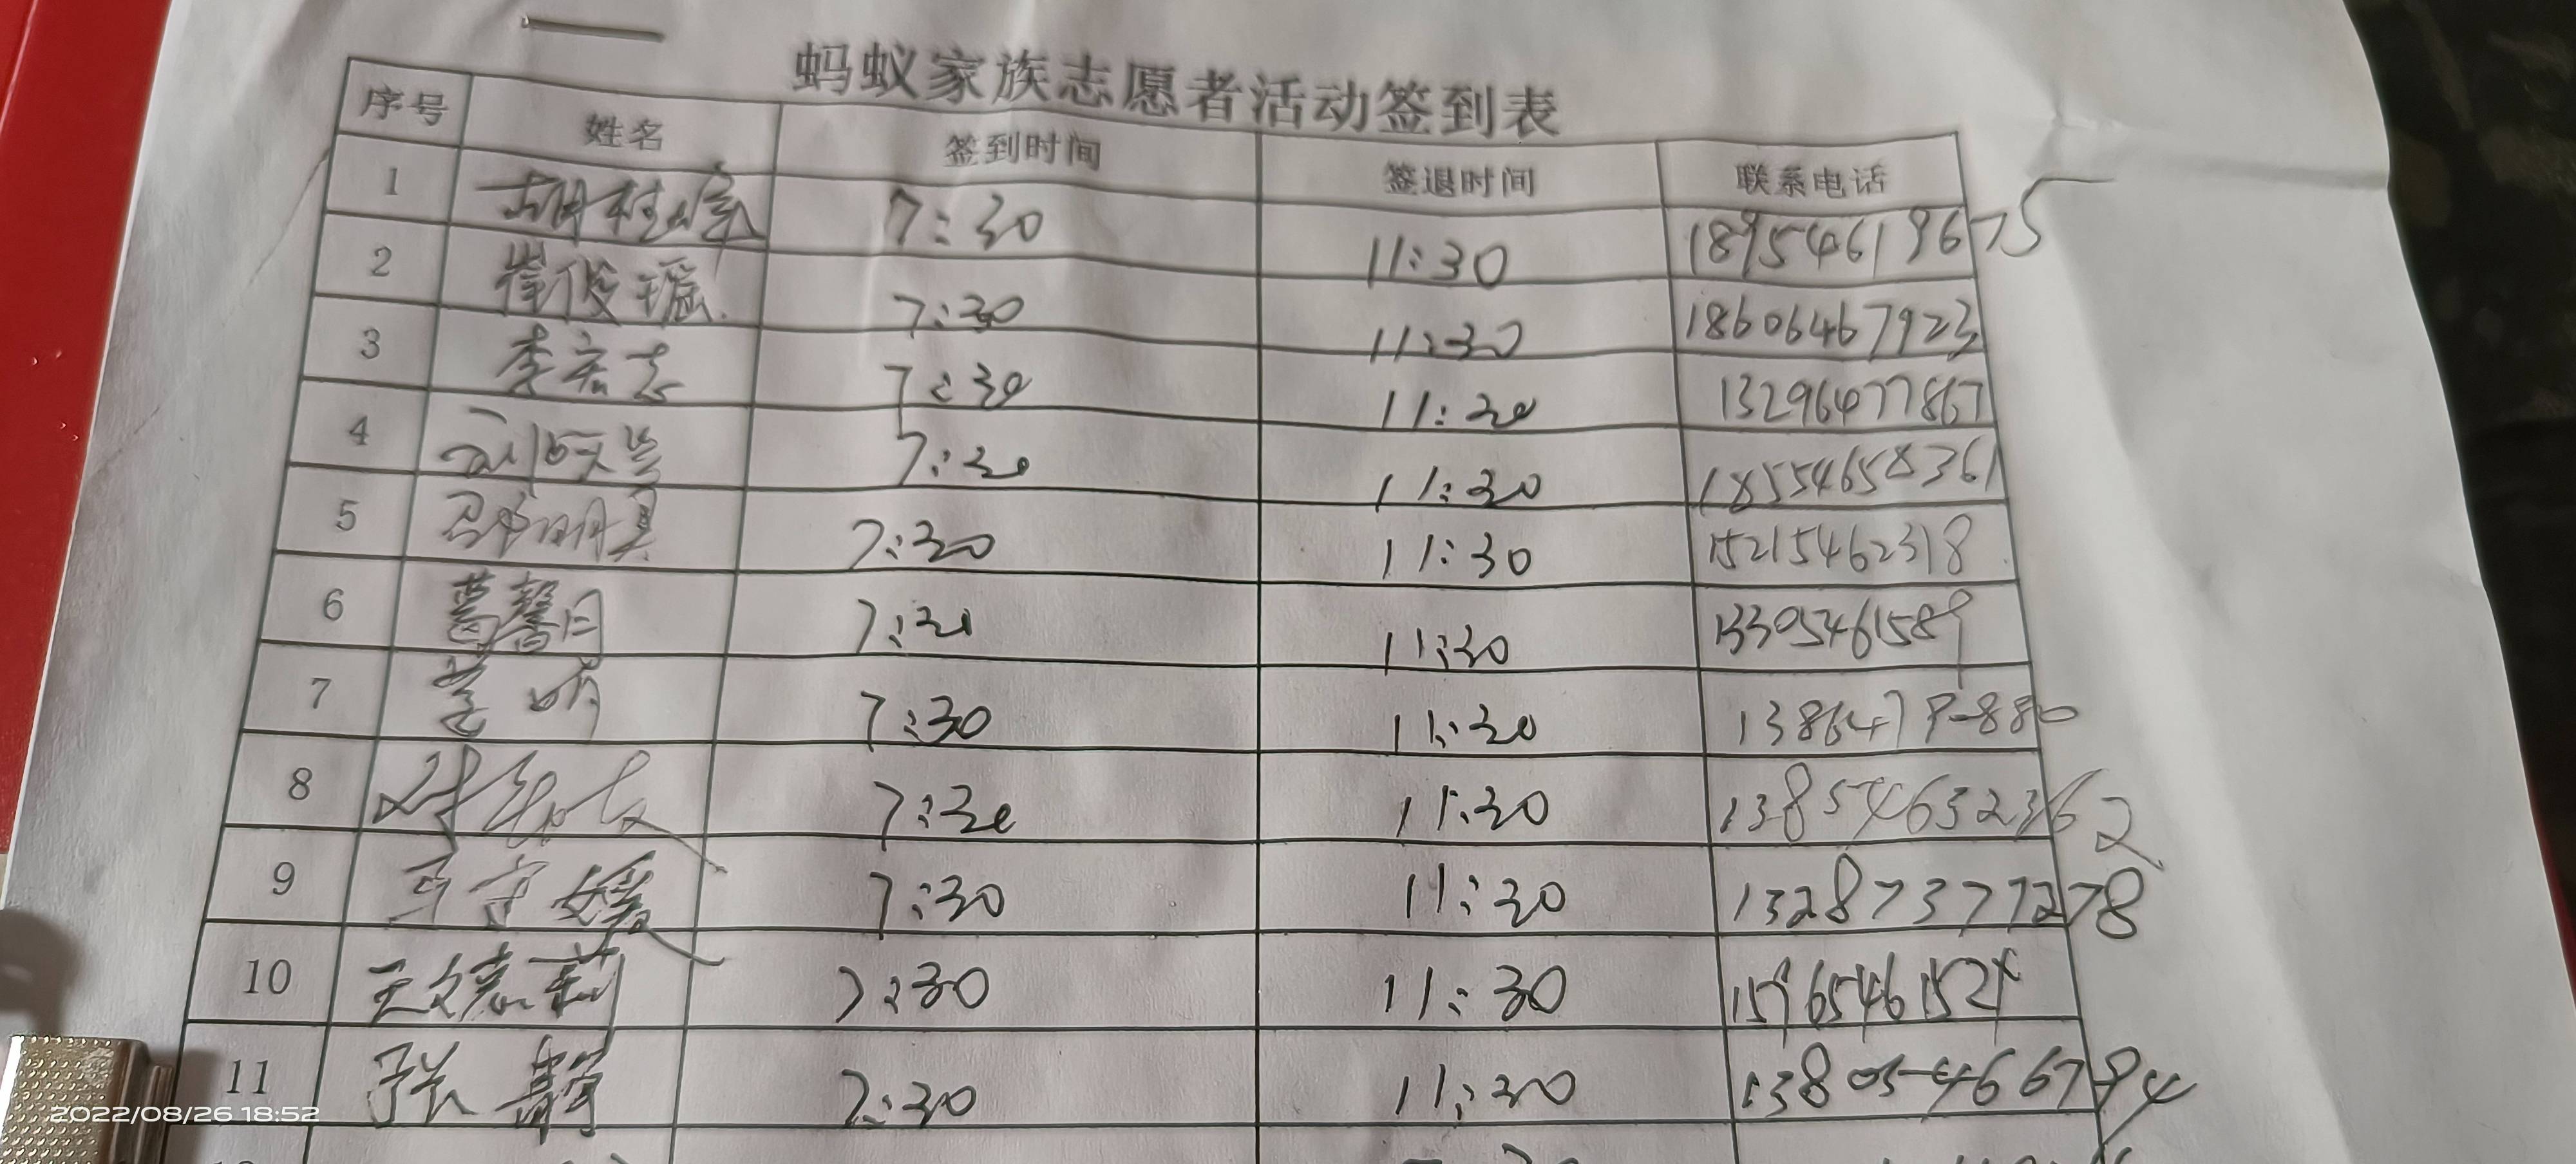 蚂蚁家族志愿者活动签到表
序号 姓名 签到时间 签退时间 联系电话
1 胡桂 7:30 11:30 18954619675
2 崔俊瑶 7:30 11:30 18606467923
3 李宏志 7:30 11:30 13296477867
4 刘 兰 7:30 11:30 18554658361
5 邵明昊 7:30 11:30 15215462318
6 葛馨日 7:30 11:30 13305461589
7 7:30 11:30
8 7:30 11:30 13854632362
9 马 媛 7:30 11:30 13287377278
10 王德莉 7:30 11:30
11 张静 7:30 11:30 13805466794
2022/08/26 18:52